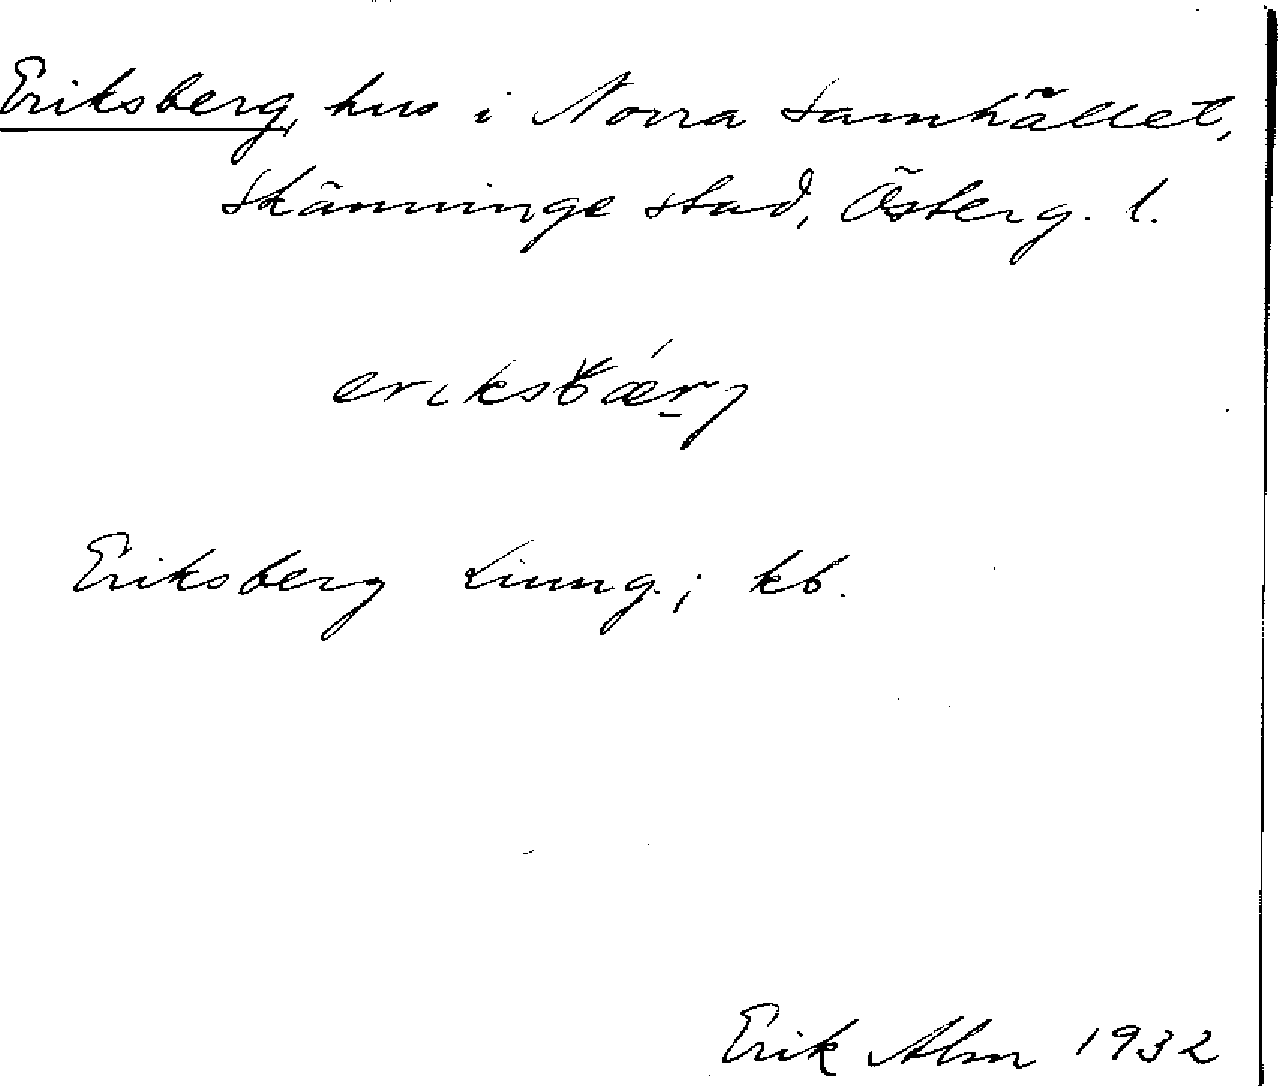 Eriksberg, hus i Norra Samhället,
Skänninge stad, Österg. l.
eriksbǽrj
Eriksberg Liung.; kb.
Erik Alm 1932